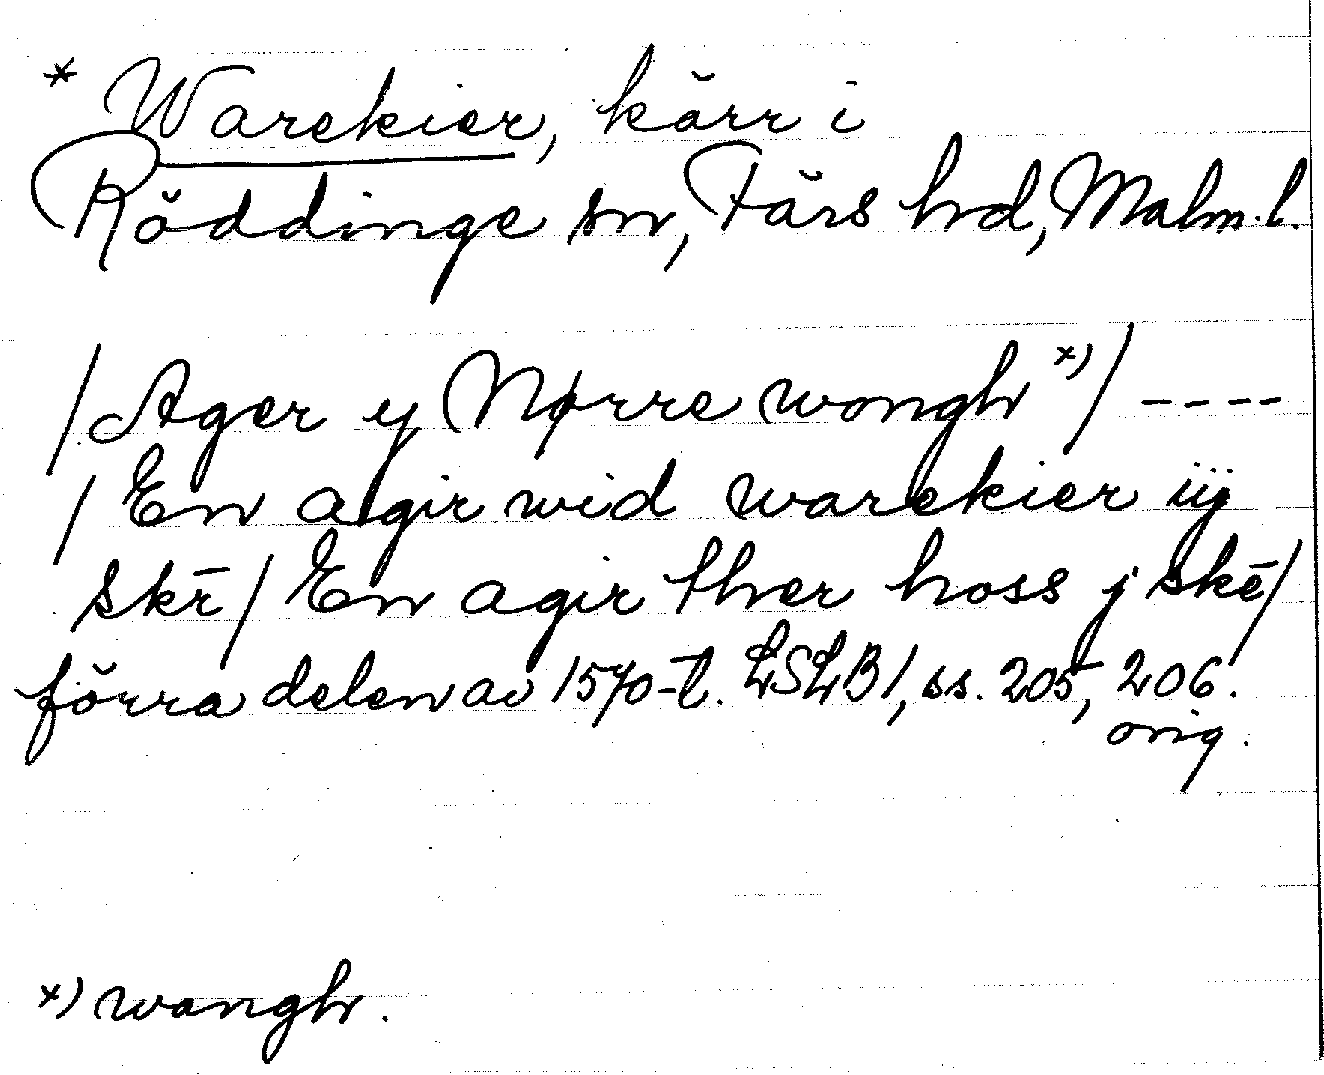 * Warekier, kärr i
Röddinge sn, Färs hd, Malm. l.
/ Ager y Nørre wongh x) / ----
/ En agir wid warekier iij
skē / En agir ther hoss j skē /
förra delen av 1570-t. LSLB 1, ss. 205, 206.
orig.
x) wangh.